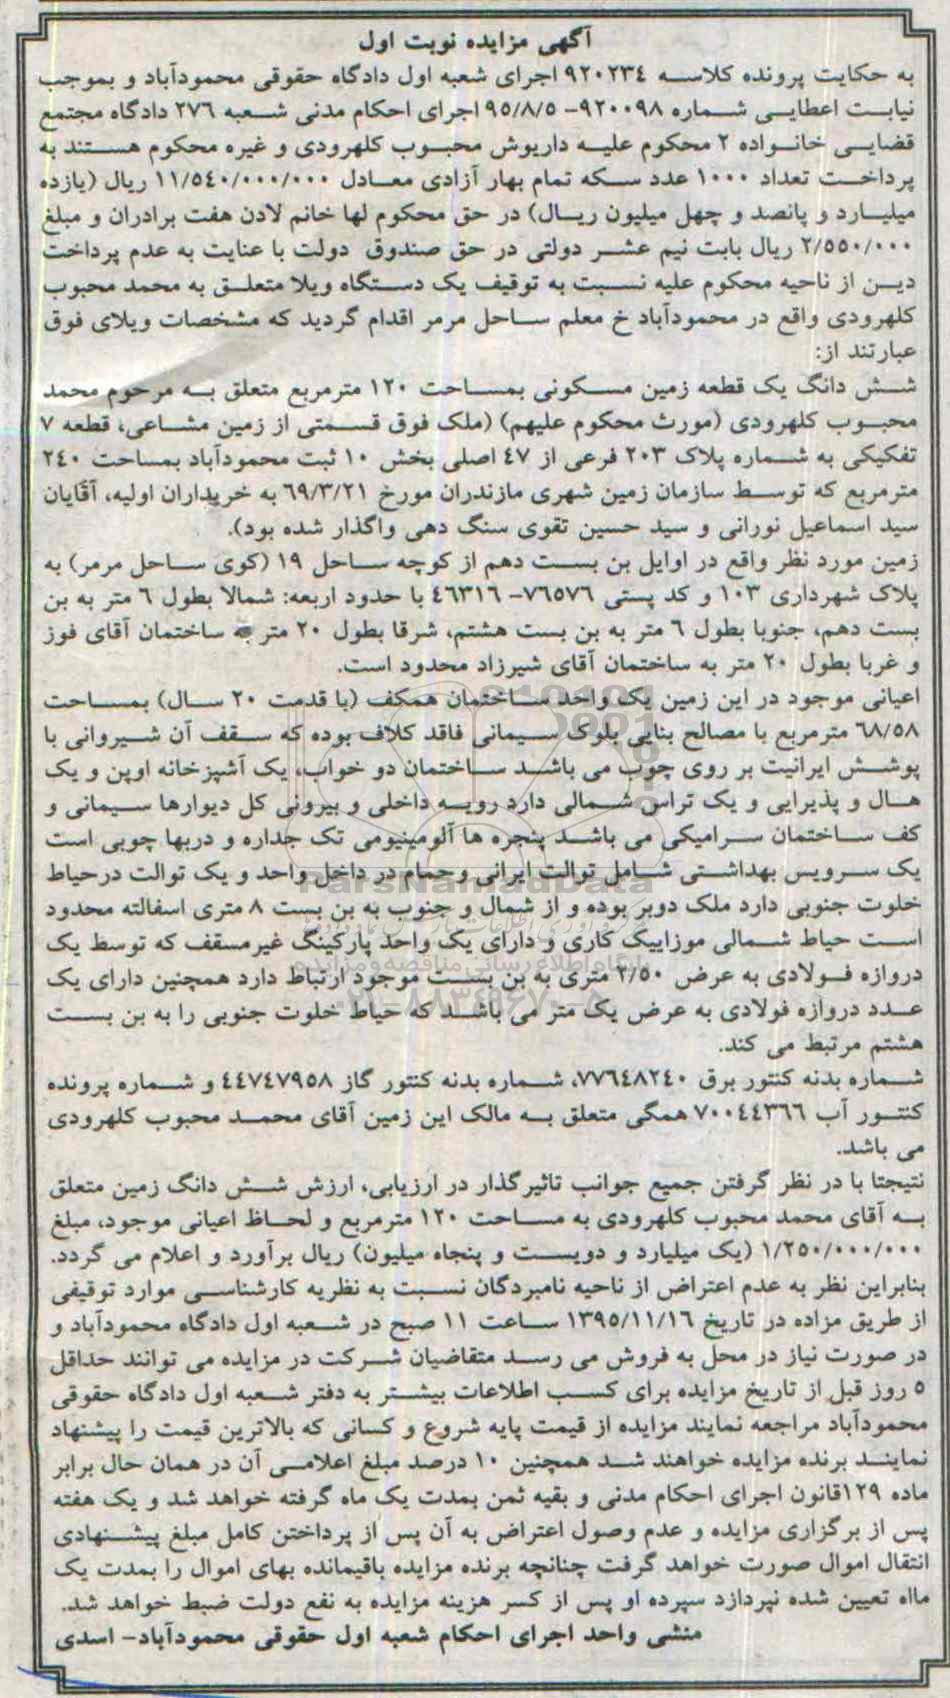 آگهی مزایده نوبت اول
به حکایت پرونده کلاسه ۹۲۰۲۳٤ اجرای شعبه اول دادگاه حقوقی محمودآباد و بموجب
نیابت اعطایی شماره ۹۲۰۰۹۸- ۹۵/۸/۵ اجرای احکام مدنی شعبه ۲۷٦ دادگاه مجتمع
قضایی خانواده ۲ محکوم علیه داریوش محبوب کلهرودی و غیره محکوم هستند به
پرداخت تعداد ۱۰۰۰ عدد سکه تمام بهار آزادی معادل ۱۱/۵٤۰/۰۰۰/۰۰۰ ریال (یازده
میلیارد و پانصد و چهل میلیون ریال) در حق محکوم لها خانم لادن هفت برادران و مبلغ
۲/۵۵۰/۰۰۰ ریال بابت نیم عشر دولتی در حق صندوق دولت با عنایت به عدم پرداخت
دین از ناحیه محکوم علیه نسبت به توقیف یک دستگاه ویلا متعلق به محمد محبوب
کلهرودی واقع در محمودآباد خ معلم ساحل مرمر اقدام گردید که مشخصات ویلای فوق
عبارتند از:
شش دانگ یک قطعه زمین مسکونی بمساحت ۱۲۰ مترمربع متعلق به مرحوم محمد
محبوب کلهرودی (مورث محکوم علیهم) (ملک فوق قسمتی از زمین مشاعی، قطعه ۷
تفکیکی به شماره پلاک ۲۰۳ فرعی از ٤۷ اصلی بخش ۱۰ ثبت محمودآباد بمساحت ۲٤۰
مترمربع که توسط سازمان زمین شهری مازندران مورخ ٦۹/۳/۲۱ به خریداران اولیه، آقایان
سید اسماعیل نورانی و سید حسین تقوی سنگ دهی واگذار شده بود).
زمین مورد نظر واقع در اوایل بن بست دهم از کوچه ساحل ۱۹ (کوی ساحل مرمر) به
پلاک شهرداری ۱۰۳ و کد پستی ۷٦۵۷٦- ٤٦۳۱٦ با حدود اربعه: شمالا بطول ٦ متر به بن
بست دهم، جنوبا بطول ٦ متر به بن بست هشتم، شرقا بطول ۲۰ متر به ساختمان آقای فوز
و غربا بطول ۲۰ متر به ساختمان آقای شیرزاد محدود است.
اعیانی موجود در این زمین یک واحد ساختمان همکف (با قدمت ۲۰ سال) بمساحت
٦۸/۵۸ مترمربع با مصالح بنایی بلوک سیمانی فاقد کلاف بوده که سقف آن شیروانی با
پوشش ایرانیت بر روی چوب می باشد ساختمان دو خواب، یک آشپزخانه اوپن و یک
هال و پذیرایی و یک تراس شمالی دارد رویه داخلی و بیرونی کل دیوارها سیمانی و
کف ساختمان سرامیکی می باشد پنجره ها آلومینیومی تک جداره و دربها چوبی است
یک سرویس بهداشتی شامل توالت ایرانی وحمام در داخل واحد و یک توالت درحیاط
خلوت جنوبی دارد ملک دوبر بوده و از شمال و جنوب به بن بست ۸ متری اسفالته محدود
است حیاط شمالی موزاییک کاری و دارای یک واحد پارکینگ غیرمسقف که توسط یک
دروازه فولادی به عرض ۲/۵۰ متری به بن بست موجود ارتباط دارد همچنین دارای یک
عدد دروازه فولادی به عرض یک متر می باشد که حیاط خلوت جنوبی را به بن بست
هشتم مرتبط می کند.
شماره بدنه کنتور برق ۷۷٦٤۸۲٤۰، شماره بدنه کنتور گاز ٤٤۷٤۷۹۵۸ و شماره پرونده
کنتور آب ۷۰۰٤٤۳٦٦ همگی متعلق به مالک این زمین آقای محمد محبوب کلهرودی
می باشد.
نتیجتا با در نظر گرفتن جمیع جوانب تاثیرگذار در ارزیابی، ارزش شش دانگ زمین متعلق
به آقای محمد محبوب کلهرودی به مساحت ۱۲۰ مترمربع و لحاظ اعیانی موجود، مبلغ
۱/۲۵۰/۰۰۰/۰۰۰ (یک میلیارد و دویست و پنجاه میلیون) ریال برآورد و اعلام می گردد.
بنابراین نظر به عدم اعتراض از ناحیه نامبردگان نسبت به نظریه کارشناسی موارد توقیفی
از طریق مزاده در تاریخ ۱۳۹۵/۱۱/۱٦ ساعت ۱۱ صبح در شعبه اول دادگاه محمودآباد و
در صورت نیاز در محل به فروش می رسد متقاضیان شرکت در مزایده می توانند حداقل
۵ روز قبل از تاریخ مزایده برای کسب اطلاعات بیشتر به دفتر شعبه اول دادگاه حقوقی
محمودآباد مراجعه نمایند مزایده از قیمت پایه شروع و کسانی که بالاترین قیمت را پیشنهاد
نمایند برنده مزایده خواهند شد همچنین ۱۰ درصد مبلغ اعلامی آن در همان حال برابر
ماده ۱۲۹قانون اجرای احکام مدنی و بقیه ثمن بمدت یک ماه گرفته خواهد شد و یک هفته
پس از برگزاری مزایده و عدم وصول اعتراض به آن پس از پرداختن کامل مبلغ پیشنهادی
انتقال اموال صورت خواهد گرفت چنانچه برنده مزایده باقیمانده بهای اموال را بمدت یک
مااه تعیین شده نپردازد سپرده او پس از کسر هزینه مزایده به نفع دولت ضبط خواهد شد.
منشی واحد اجرای احکام شعبه اول حقوقی محمودآباد- اسدی
ParsNamadData
پایگاه اطلاع رسانی مناقصه و مزایده
۰۲۱-۸۸۳۴۹۶۷۰-۵